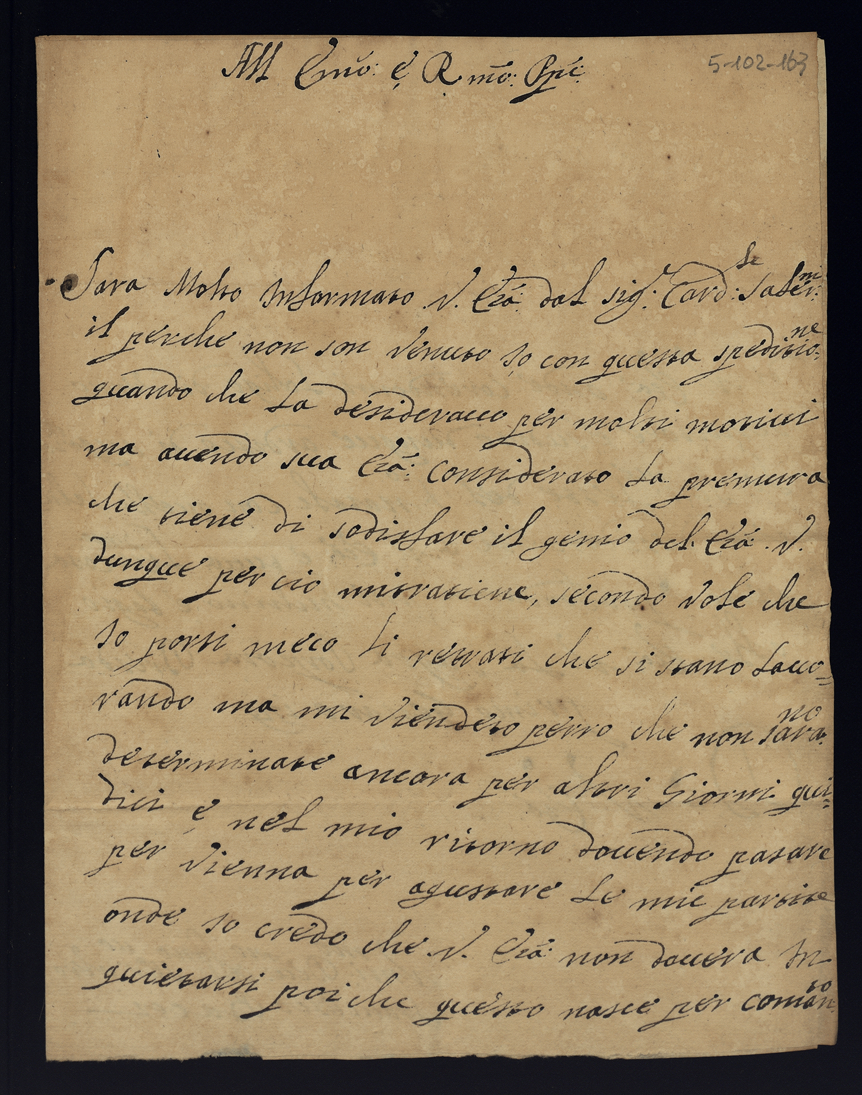 5-102-163
All Emo: e, R.mo: Ppe:
Sara Molto Informato V. Eza: dal sig.r Card:le Saler:ni
il perche non son venuto Io con questa speditio:ne
quando che La desiderauo per molti motiui
ma auendo sua Eza: Considerato La premura
che tiene di sodisfare il genio del Eza: V.
dunque per cio mitratiene, secondo vole che
Io porti meco Li retrati che si stano Lauo=
rando ma mi vien deto perro che non sara:no
determinate ancora per altri Giorni qui=
dici e nel mio ritorno douendo pasare
per Vienna per agustare Le mie partite
onde Io credo che V. Eza: non douera In
quietarsi poi che questo nasce per coman:to